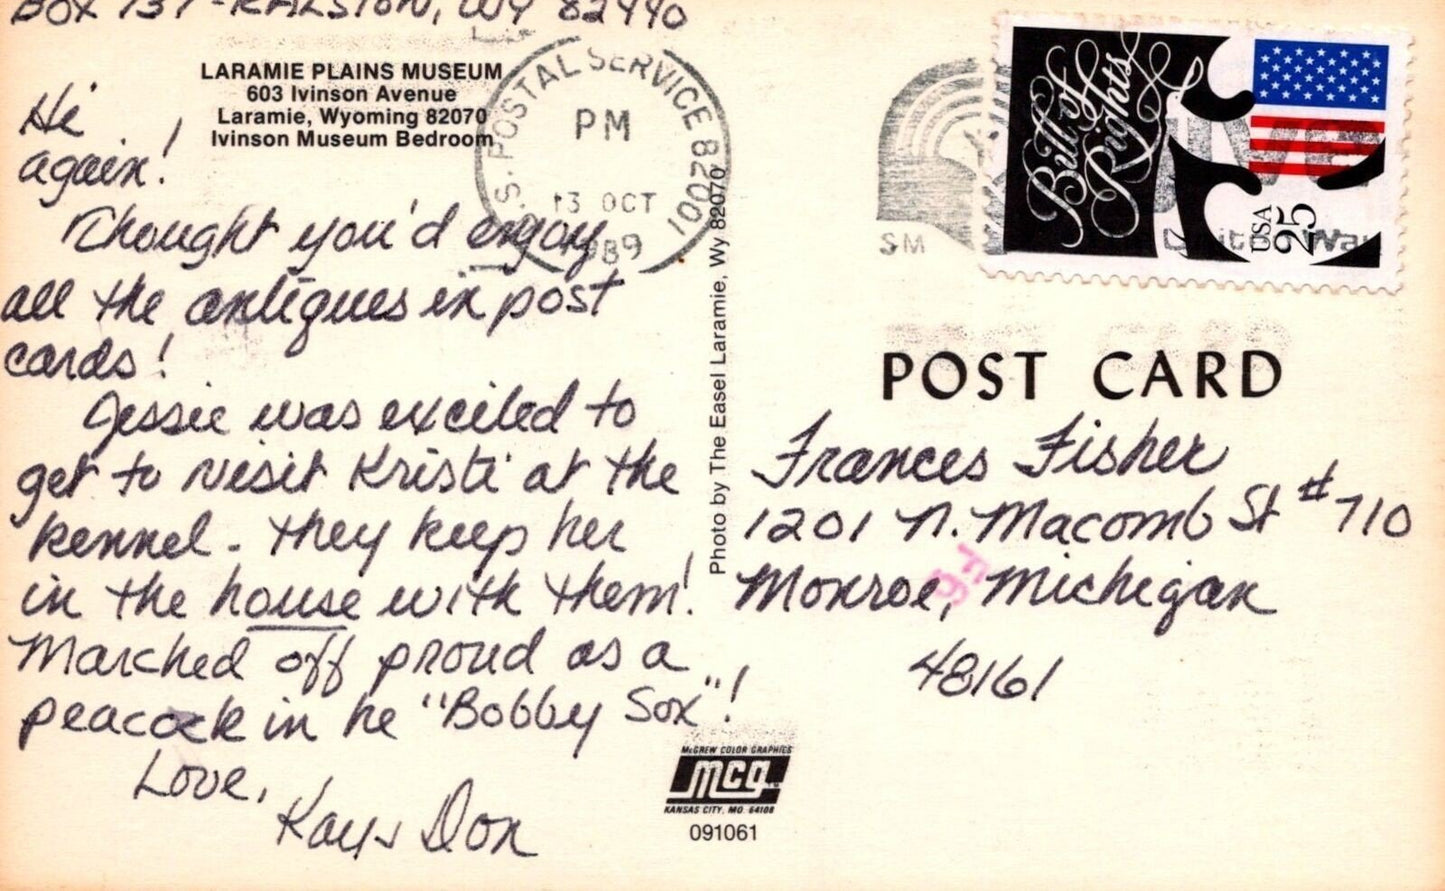 BOX 737 - RALSTON, WY 82440
LARAMIE PLAINS MUSEUM
603 Ivinson Avenue
Laramie, Wyoming 82070
Ivinson Museum Bedroom
Hi
again!
Thought you'd enjoy
all the antiques in post
cards!
Jessie was excited to
get to visit Kristi at the
kennel - they keep her
in the house with them!
Marched off proud as a
peacock in he "Bobby Sox"!
Love,
Kay & Don
U.S. POSTAL SERVICE 82001
PM
13 OCT
1989
Photo by The Easel Laramie, Wy 82070
McGREW COLOR GRAPHICS
mcg
KANSAS CITY, MO. 64108
091061
SM
Bill of
Rights
USA
25
POST CARD
Frances Fisher
1201 N. Macomb St #710
Monroe, Michigan
48161